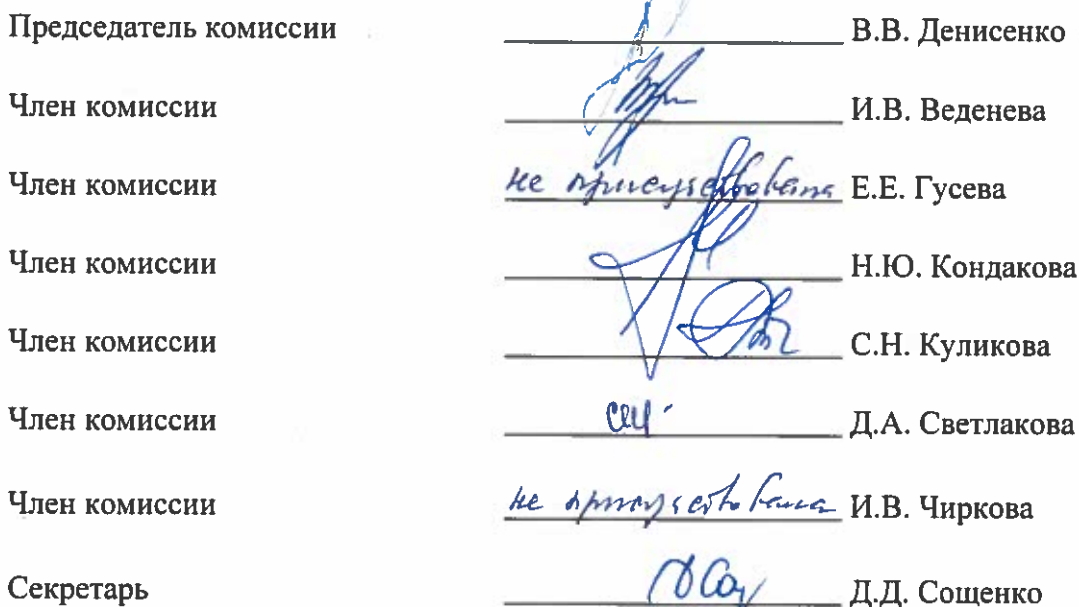 Председатель комиссии В.В. Денисенко
Член комиссии И.В. Веденева
Член комиссии не присутствовала Е.Е. Гусева
Член комиссии Н.Ю. Кондакова
Член комиссии С.Н. Куликова
Член комиссии Д.А. Светлакова
Член комиссии не присутствовала И.В. Чиркова
Секретарь Д.Д. Сощенко